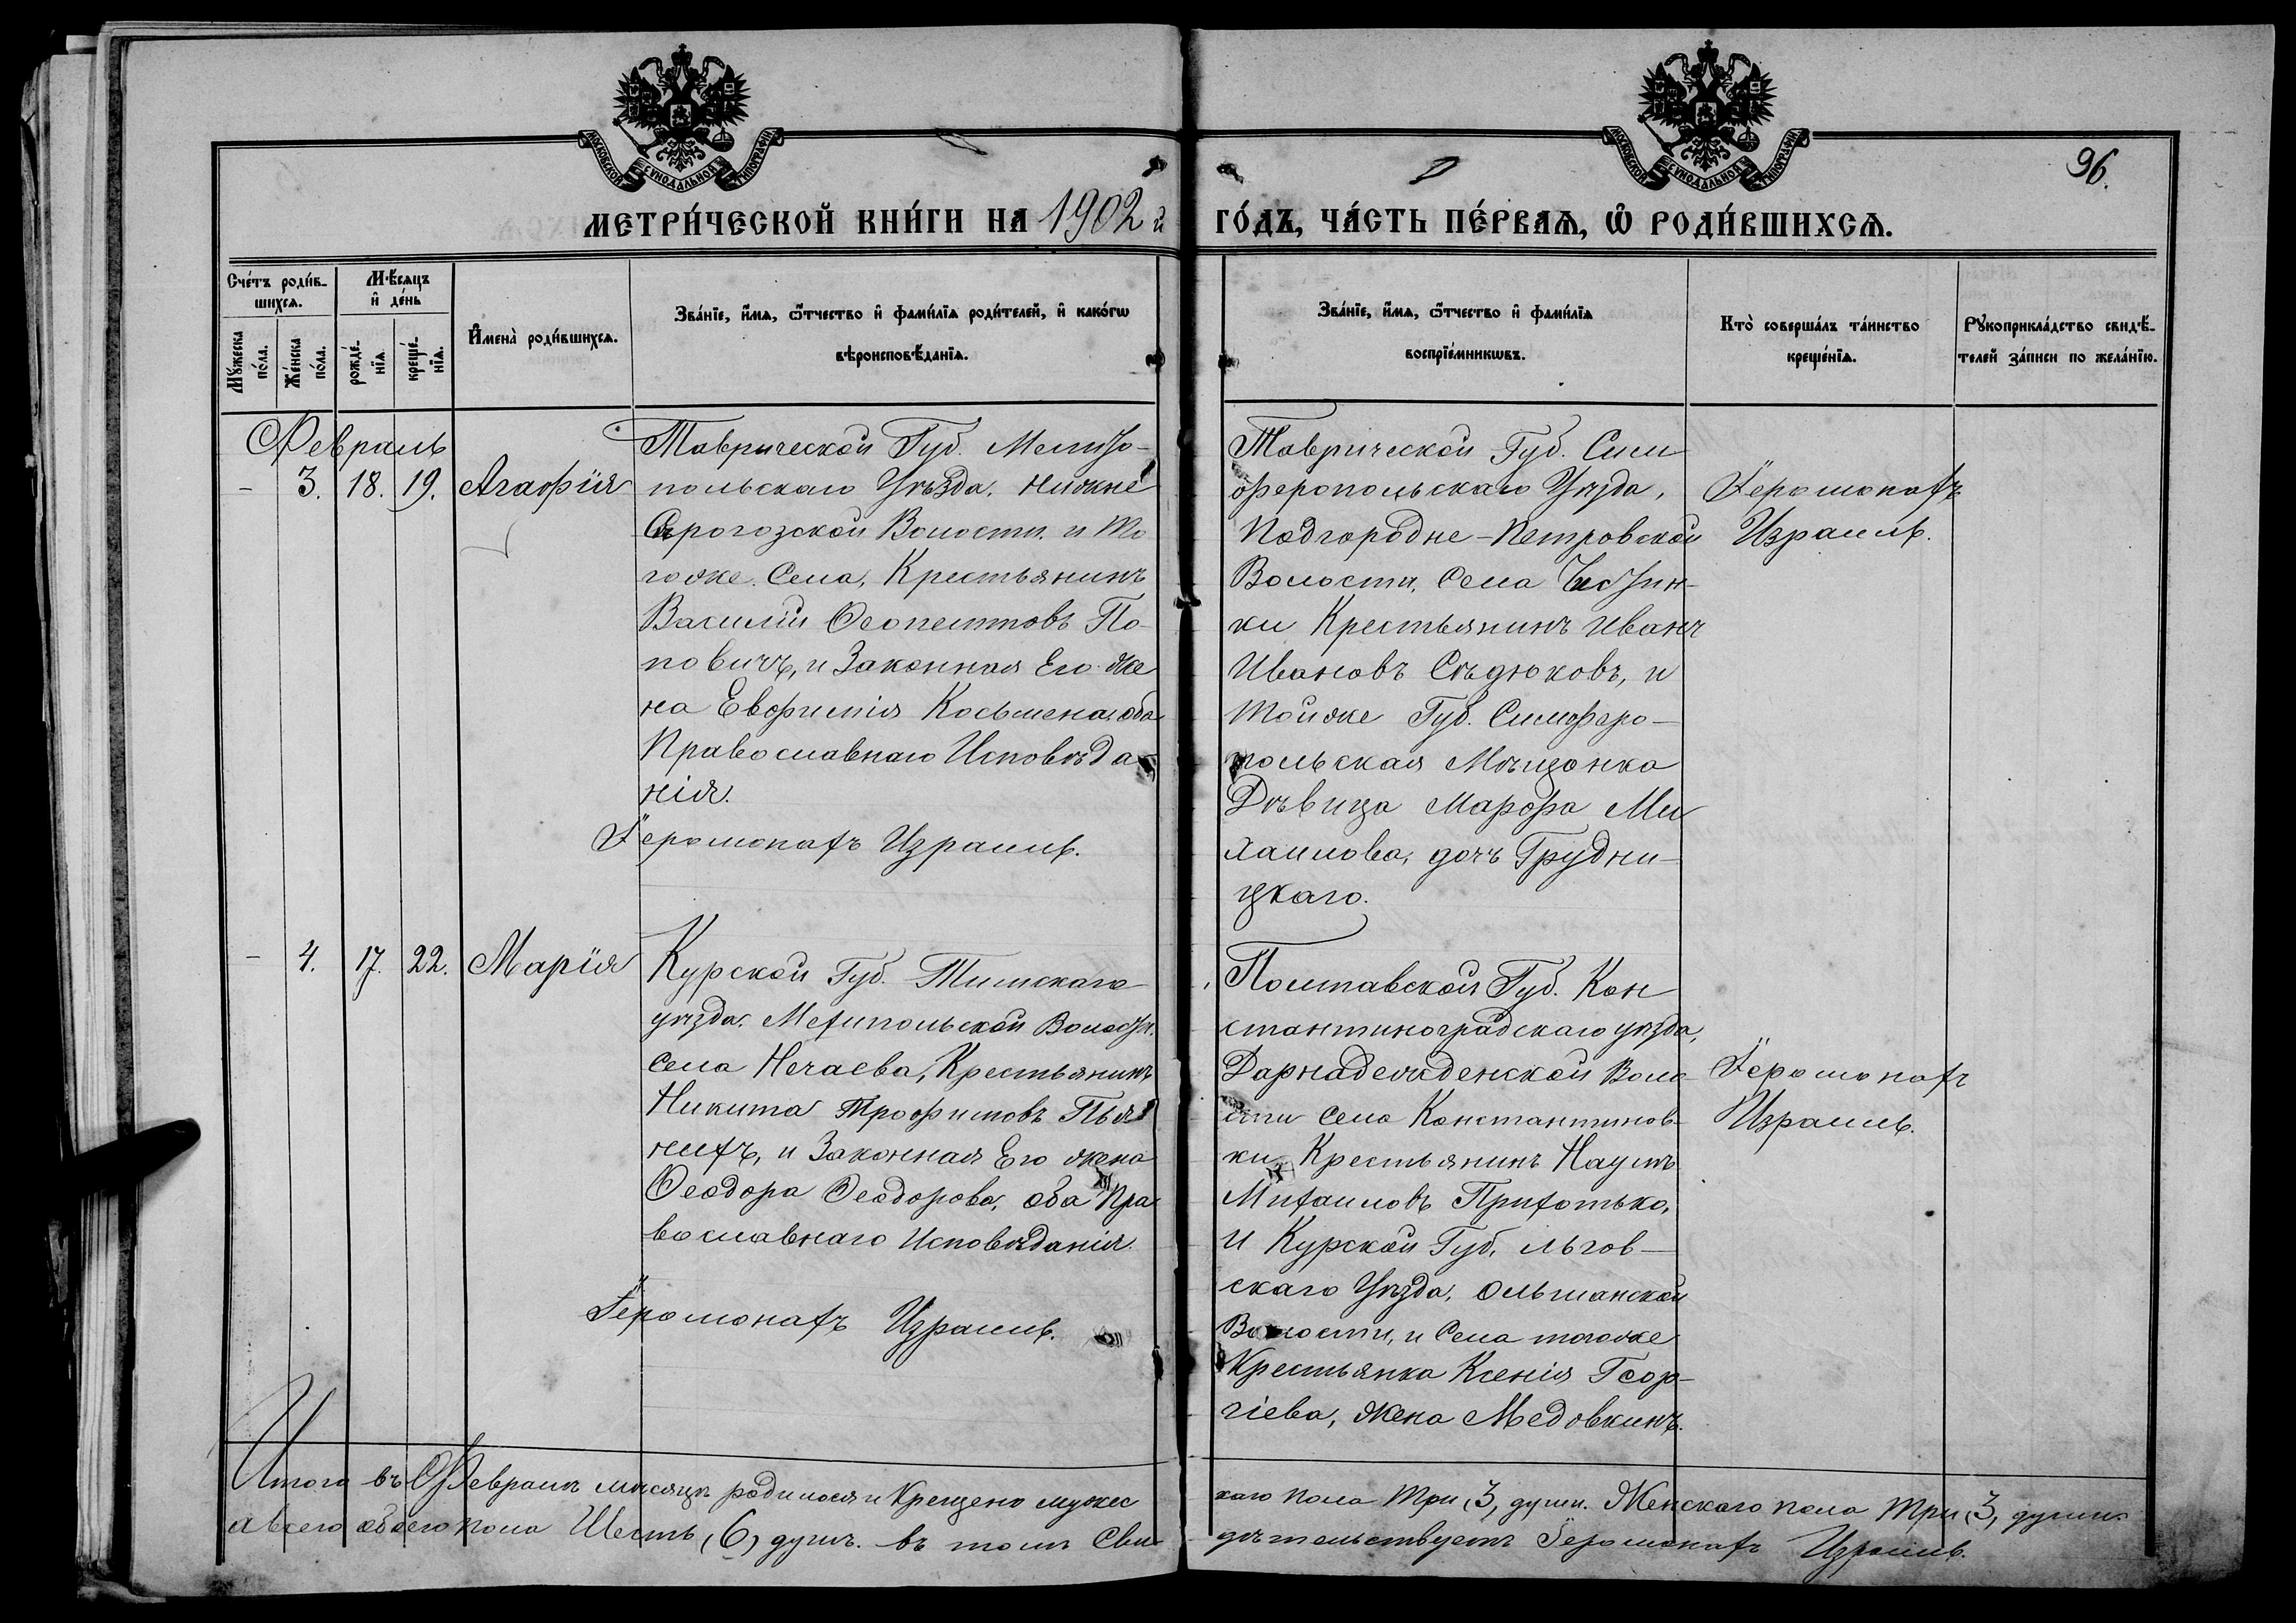 МОСКОВСКОЙ СУНОДАЛЬНОЙ ТИПОГРАФІИ
МОСКОВСКОЙ СУНОДАЛЬНОЙ ТИПОГРАФІИ
96.
МЕТРИ́ЧЕСКОЙ КНИ́ГИ НА 1902 й ГО́ДЪ, ЧА́СТЬ ПЕ́РВАѦ, Ѡ҆ РОДИ́ВШИХСѦ.
Сче́тъ роди́в-
шихсѧ.
Мꙋ́жеска
по́ла.
Же́нска
по́ла.
Мѣ́сѧцъ
и҆ де́нь
рожде́-
нїѧ.
креще́-
нїѧ.
И҆мена̀ роди́вшихсѧ.
Зва́нїе, и҆́мѧ, ѻ҆́тчество и҆ фами́лїѧ роди́телей, и҆ како́гѡ
вѣроисповѣ́данїѧ.
Зва́нїе, и҆́мѧ, ѻ҆́тчество и҆ фами́лїѧ
воспрїе́мникѡвъ.
Кто̀ соверша́лъ та́инство
креще́нїѧ.
Рꙋкоприкла́дство свидѣ́-
телей за́писи по жела́нїю.
Февраль
- 3. 18. 19. Агафія
Таврической Губ. Мелито-
польскаго Уѣзда, Нижне
Сѣрогозской Волости, и То
гоже Села, Крестьянинъ
Василій Феопемптовъ По-
повичъ, и Законная Его Же
на Евфимія Косьмена, оба
Православнаго Исповѣда-
нія.
Іеромонахъ Израиль.
Таврической Губ. Сим
феропольскаго Уѣзда,
Подгородне-Петровской
Волости, Села
ки Крестьянинъ Иванъ
Ивановъ Сѣдюковъ, и
Тойже Губ. Симферо-
польская Мѣщанка
Дѣвица Марфа Ми
хаилова, дочь Грудни-
цкаго.
Іеромонахъ
Израиль.
- 4. 17. 22. Марія
Курской Губ. Тимскаго
уѣзда, Мехипольской Волости,
Села Нечаева, Крестьянинъ
Никита Трофимовъ Пья
ныхъ, и Законная Его жена
Феодора Феодорова, оба Пра
вославнаго Исповѣданія.
Іеромонахъ Израиль.
Полтавской Губ. Кон
стантиноградскаго уѣзда,
Дарнадеиденской Воло
сти Села Константинов-
ки Крестьянинъ Наумъ
Михаиловъ Прихотько,
и Курской Губ. Льгов-
скаго Уѣзда, Ольшанской
Волости, и Села тогоже
Крестьянка Ксенія Геор-
гіева, Жена Медовкинъ.
Іеромонахъ
Израиль.
Итого въ Февралѣ мѣсяцѣ родилося и Крещено мужес каго пола Три, 3, души. Женскаго пола Три, 3, души
а всего обоего пола Шесть, (6) душъ. въ томъ Сви дѣтельствуетъ Іеромонахъ Израиль.